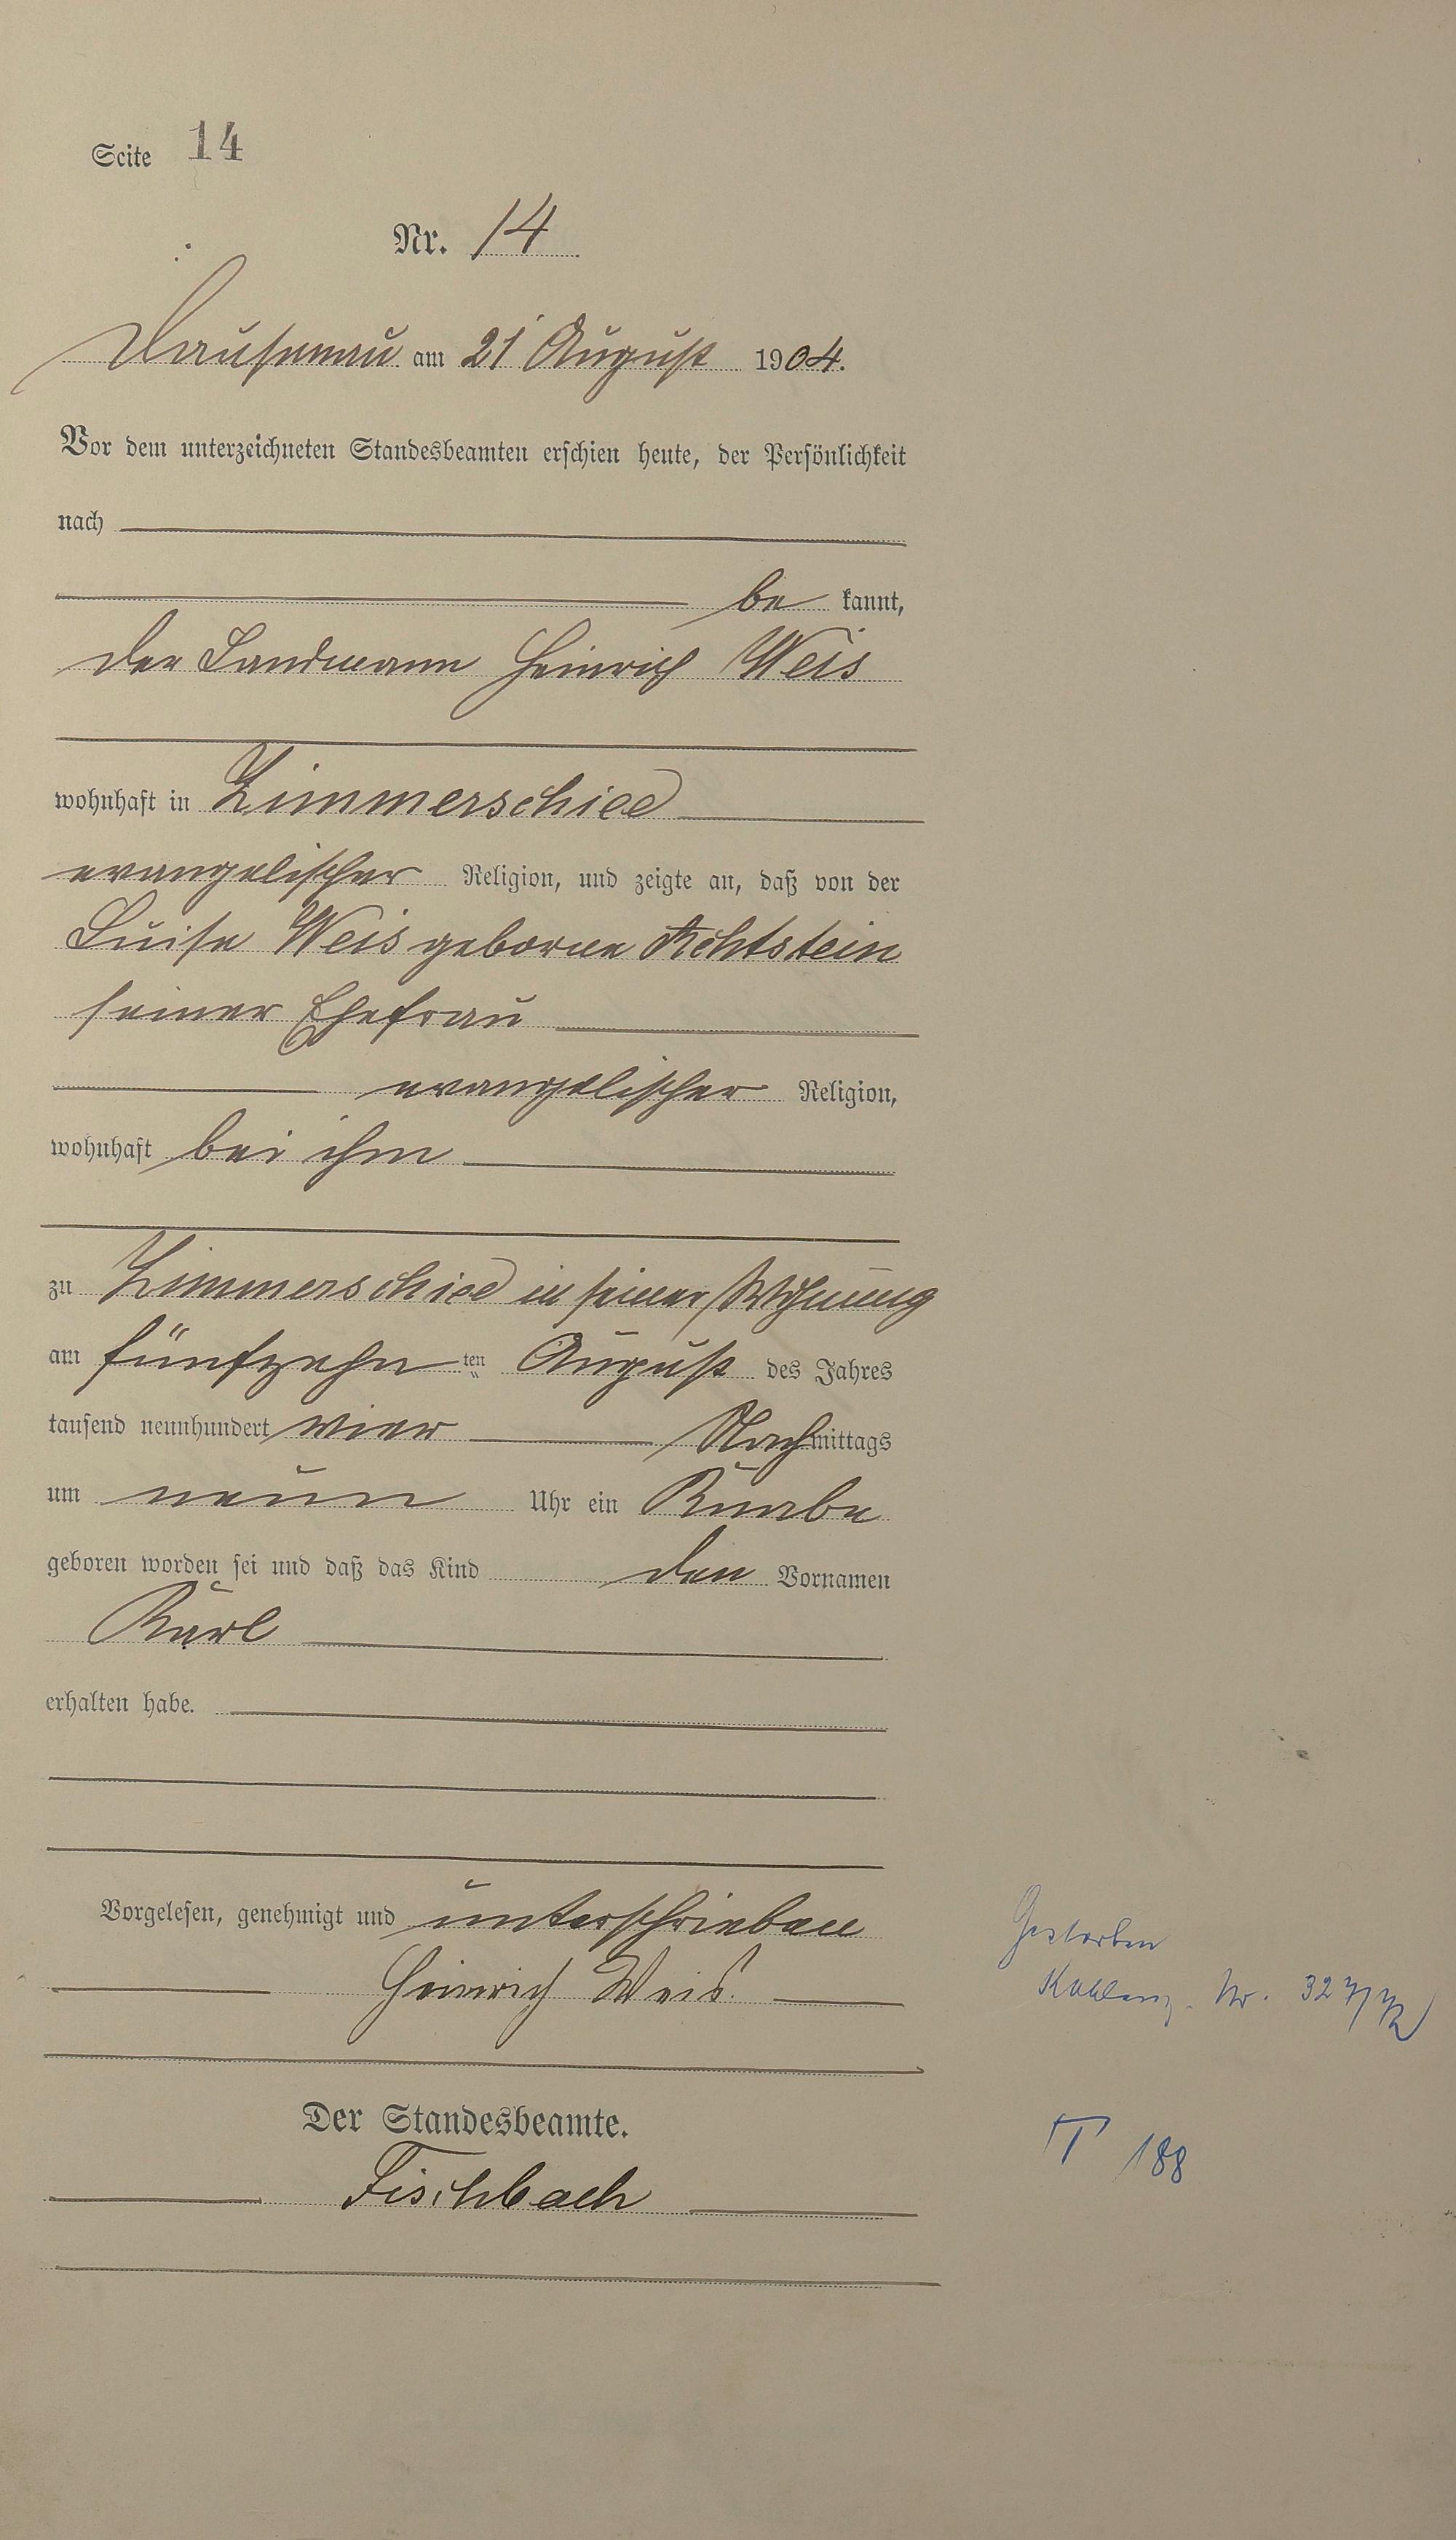 Seite 14
Nr. 14
Dausenau am 21 August 1904.
Vor dem unterzeichneten Standesbeamten erschien heute, der Persönlichkeit
nach
be kannt,
der Landmann Heinrich Weis
wohnhaft in Zimmerschied
evangelischer Religion, und zeigte an, daß von der
Luise Weis geborne Achtstein
seiner Ehefrau
evangelischer Religion,
wohnhaft bei ihm
zu Zimmerschied in seiner Wohnung
am fünfzehn ten August des Jahres
tausend neunhundert vier Nachmittags
um neun Uhr ein Knabe
geboren worden sei und daß das Kind den Vornamen
Karl
erhalten habe.
Vorgelesen, genehmigt und unterschrieben
Heinrich Weis.
Der Standesbeamte.
Fischbach
Gestorben
Koblenz Nr. 327/72
T 188